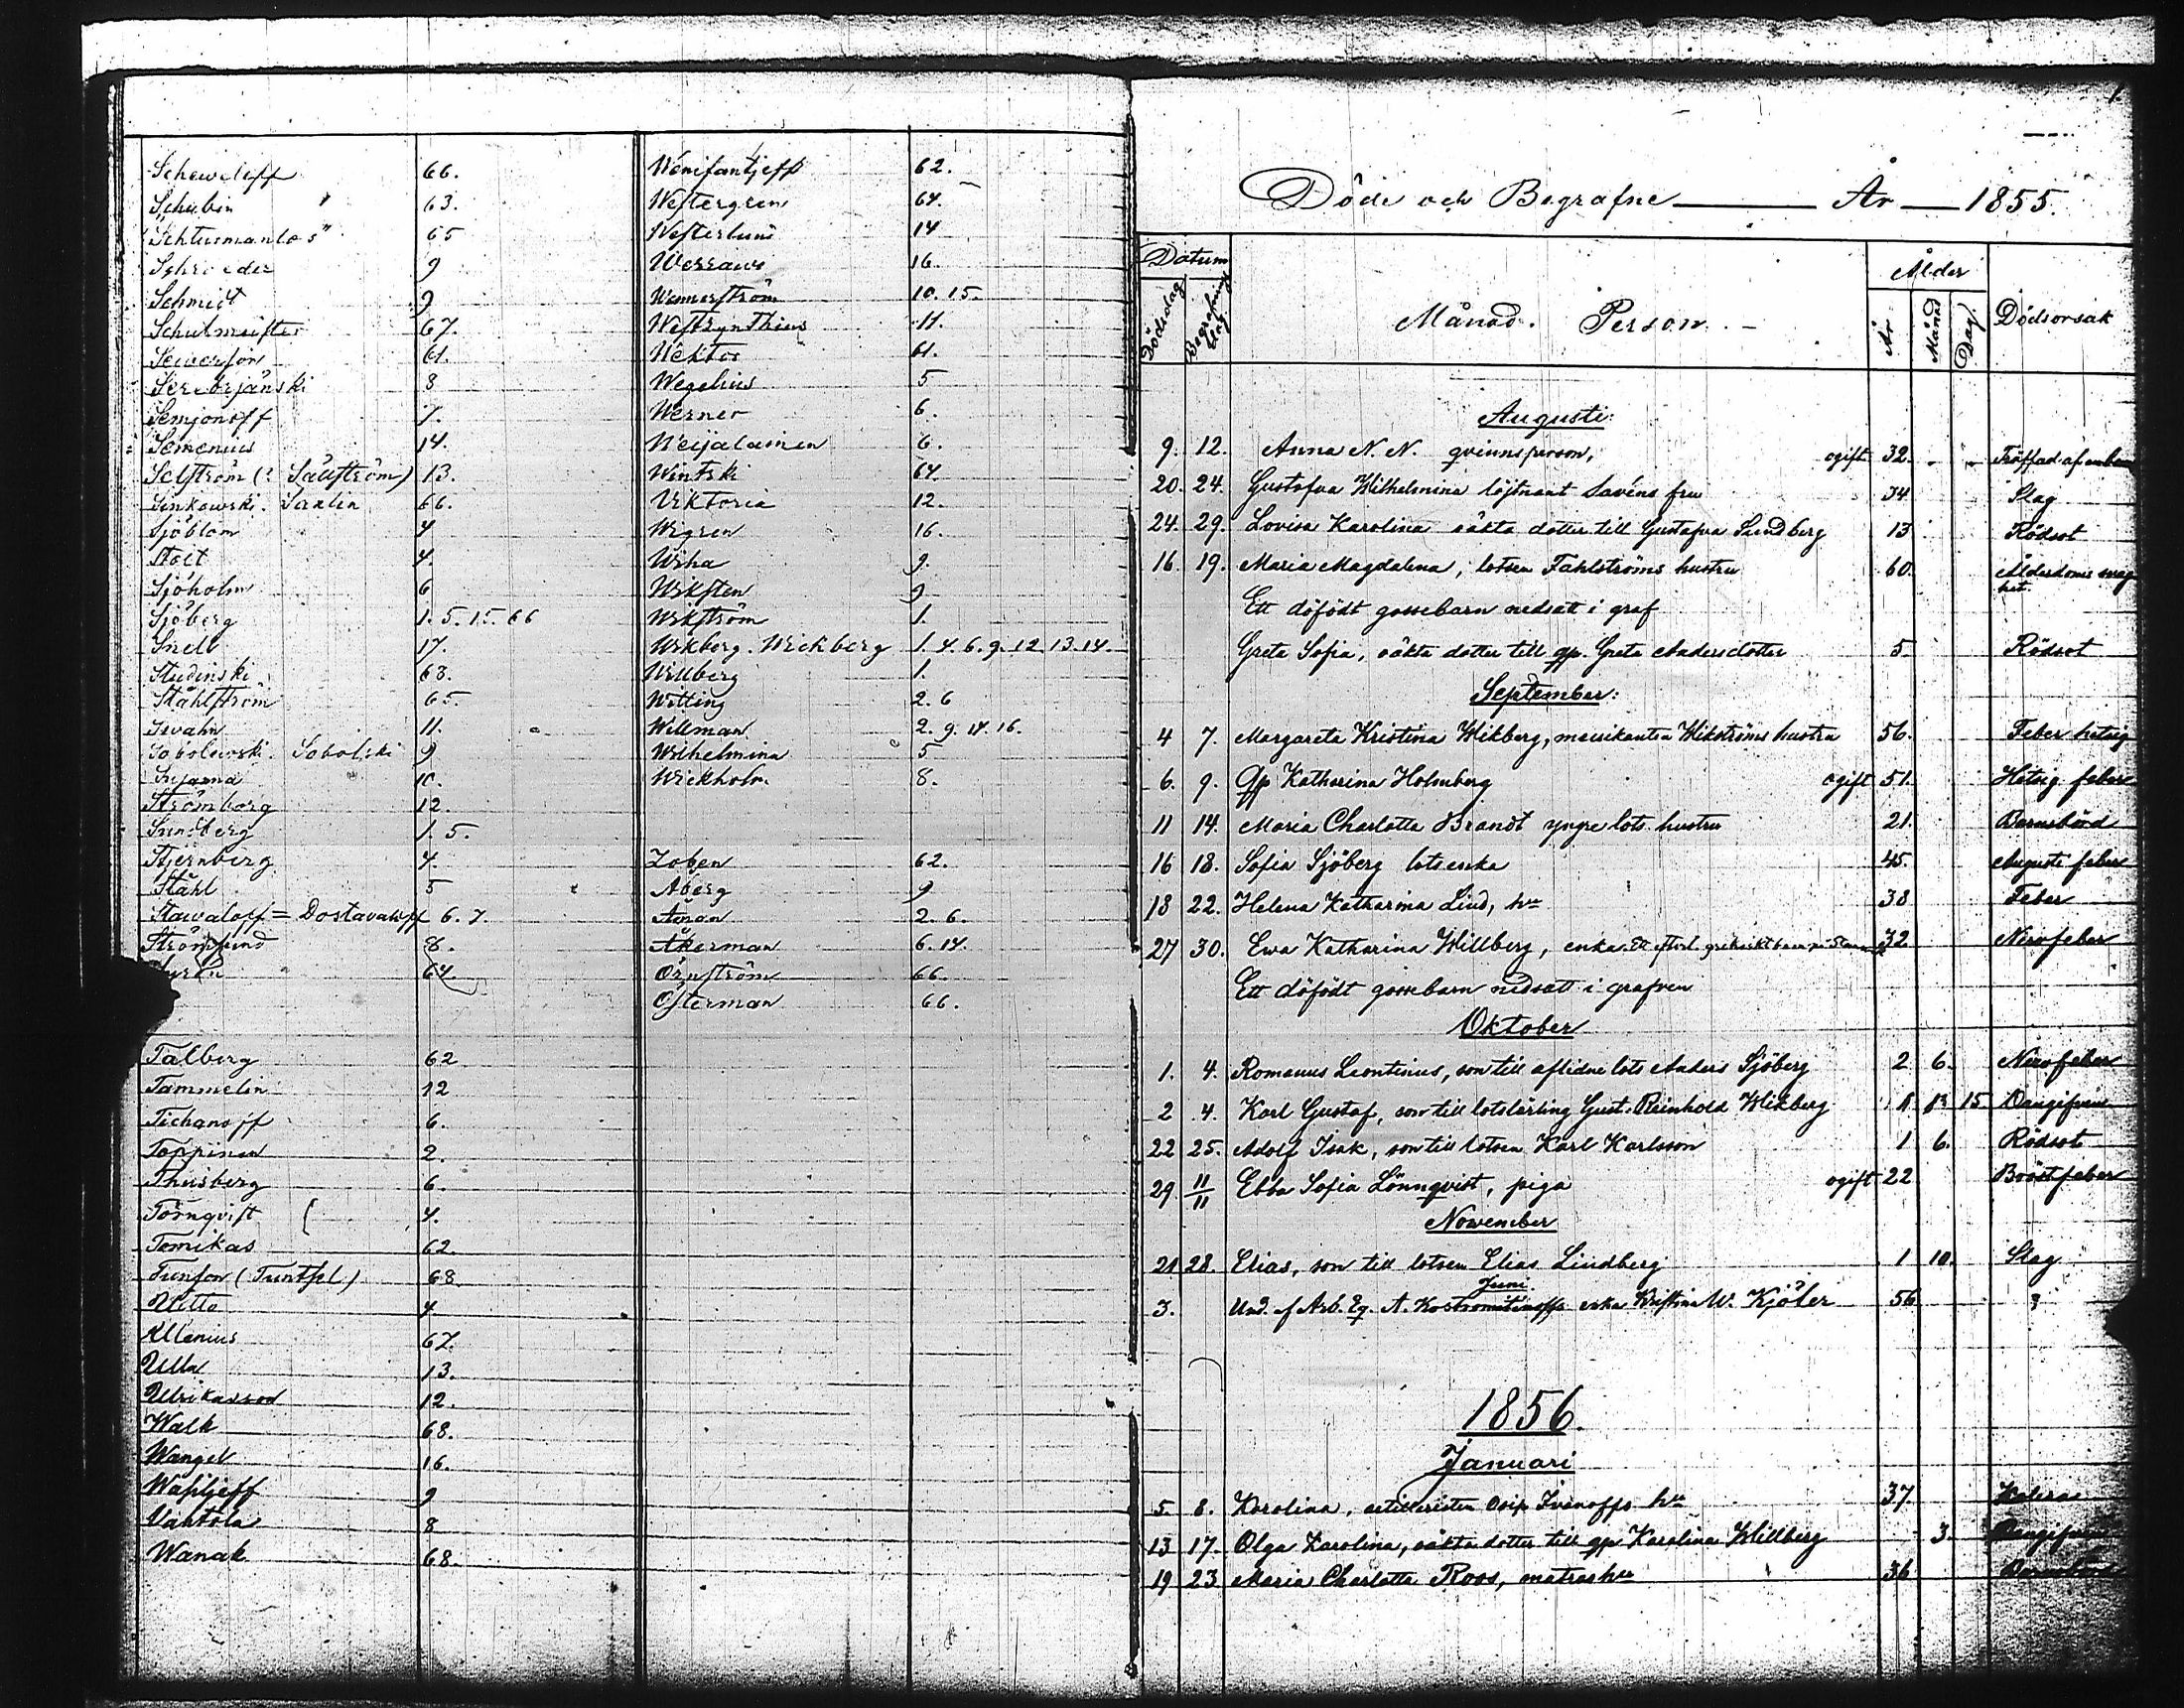 Scheweleff 66.
Schubin 63.
Schtusmanlos" 65
Schrœder 9
Schmidt 9
Schulmeister 67.
Sewerson 61.
Serebrjänski 8
Semjonoff 7.
Semenius 14.
Selström (: Sällström) 13.
Sinkowski. Saxlin 66.
Sjöblom 4
Stolt 4.
Sjöholm 6
Sjöberg 1. 5. 15. 66
Snell 17.
Studinski 63.
Ståhlström 65.
Swahn 11.
Sobolewski. Sobolski 9
10.
Strömborg 12.
Sundberg 1. 5.
Stjernberg 4.
Ståhl 5
Stawaloff = Dostavaloff 6. 7.
Strömlund 8.
64.
Talberg 62
Tammelin 12
Tichanoff 6.
Toppinen 2.
Thusberg 6.
Törnqvist 4.
Tomikas 62.
Tunson (Tuntsel) 68
Utitto 4
Ullenius 67.
Ulla 13.
Ulrikasson 12.
Walk 68.
Wangel 16.
Wasiljeff 9
Vantola 8
Wanak 68.
Wenifantjeff 62.
Westergren 64.
Westerlund 14
16.
Wennerström 10. 15.
Westzynthius 11.
Wektor 61.
Wegelius 5
Werner 6.
Weijalainen 6.
Wintski 64.
Viktoria 12.
Wigren 16.
Wiha 9.
Wiksten 9
Wikström 1.
Wikberg. Wickberg 1. 4. 6. 9. 12. 13. 14.
Willberg 1.
Witting 2. 6
Willman 2. 9. 14. 16.
Wilhelmina 5
Wickholm. 8.
Zoben 62.
Åberg 9
Åman 2. 6.
Åkerman 6. 14.
Örnström 66.
Österman 66.
1
Döde och Begrafne År 1855.
Datum Ålder
Dödsdag Begrafningsdag Månad. Person. År Månad Dag. Dödsorsak
Augusti:
9. 12. Anna N. N. qvinnsperson, ogift 32. - - Träffad af
20. 24. Gustafva Wilhelmina löjtnant Savéns fru 34 Slag
24. 29. Lovisa Karolina oäkta dotter till Gustafva Sundberg 13 Rödsot
16. 19. Maria Magdalena, lotsen Fahlströms hustru 60. Ålderdoms svaghet.
Ett döfödt gossebarn nedsatt i graf
Greta Sofia, oäkta dotter till qp. Greta Andersdotter 5. Rödsot
September:
4 7. Margareta Kristina Wikberg, musikanten Wikströms hustru 56. Feber hetsig
6. 9. Qp Katharina Holmberg ogift 51. Hetsig feber
11 14. Maria Charlotta Brandt yngre lots. hustru 21. Barnsbörd
16 18. Sofia Sjöberg lotsenka 45. Augusti feber
18 22. Helena Katharina Lind, hu 38 Feber
27 30. Ewa Katharina Willberg, enka. Ett efterl. grekiskt barn 32 Nervfeber
Ett döfödt gossebarn nedsatt i grafven
Oktober
1. 4. Romanus Leontinus, son till aflidne lots Anders Sjöberg 2 6. Nervfeber
2 4. Karl Gustaf, son till lotslärling Gust. Reinhold Wikberg 15.
22 25. Adolf Isak, son till lotsen Karl Karlsson 1 6. Rödsot
29 11/11 Ebba Sofia Lönnqvist, piga ogift 22 Bröstfeber
November
21 28. Elias, son till lotsen Elias Lindberg 1 10. Slag
Juni
3. Und. of Arb. Eq. A. Kostromitinoffs enka Kristina W. Kjöler 56 ?
1856.
Januari
5. 8. Karolina, artilleristen Osip Ivanoffs hu 37. Kolera
13 17. Olga Karolina, oäkta dotter till qp Karolina Willberg 3.
19 23 Maria Charlotta Roos, matros hu 36 Barnsbörd